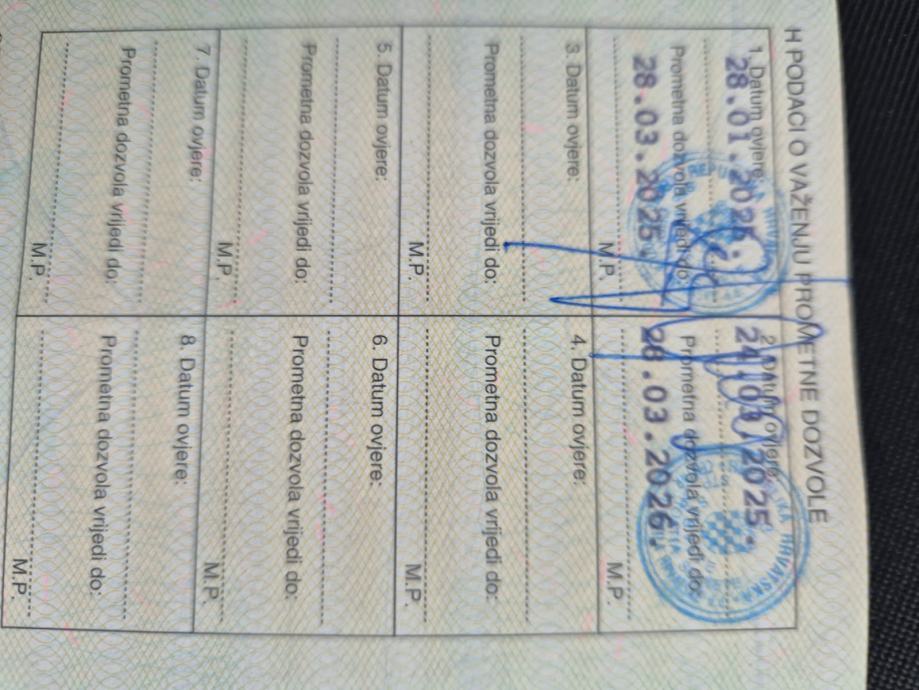 H PODACI O VAŽENJU PROMETNE DOZVOLE
1. Datum ovjere:
28.01.2025.
Prometna dozvola vrijedi do:
28.03.2025.
M.P.
2. Datum ovjere:
24.03.2025.
Prometna dozvola vrijedi do:
28.03.2026.
M.P.
3. Datum ovjere:
Prometna dozvola vrijedi do:
M.P.
4. Datum ovjere:
Prometna dozvola vrijedi do:
M.P.
5. Datum ovjere:
Prometna dozvola vrijedi do:
M.P.
6. Datum ovjere:
Prometna dozvola vrijedi do:
M.P.
7. Datum ovjere:
Prometna dozvola vrijedi do:
M.P.
8. Datum ovjere:
Prometna dozvola vrijedi do:
M.P.
HRVATSKA